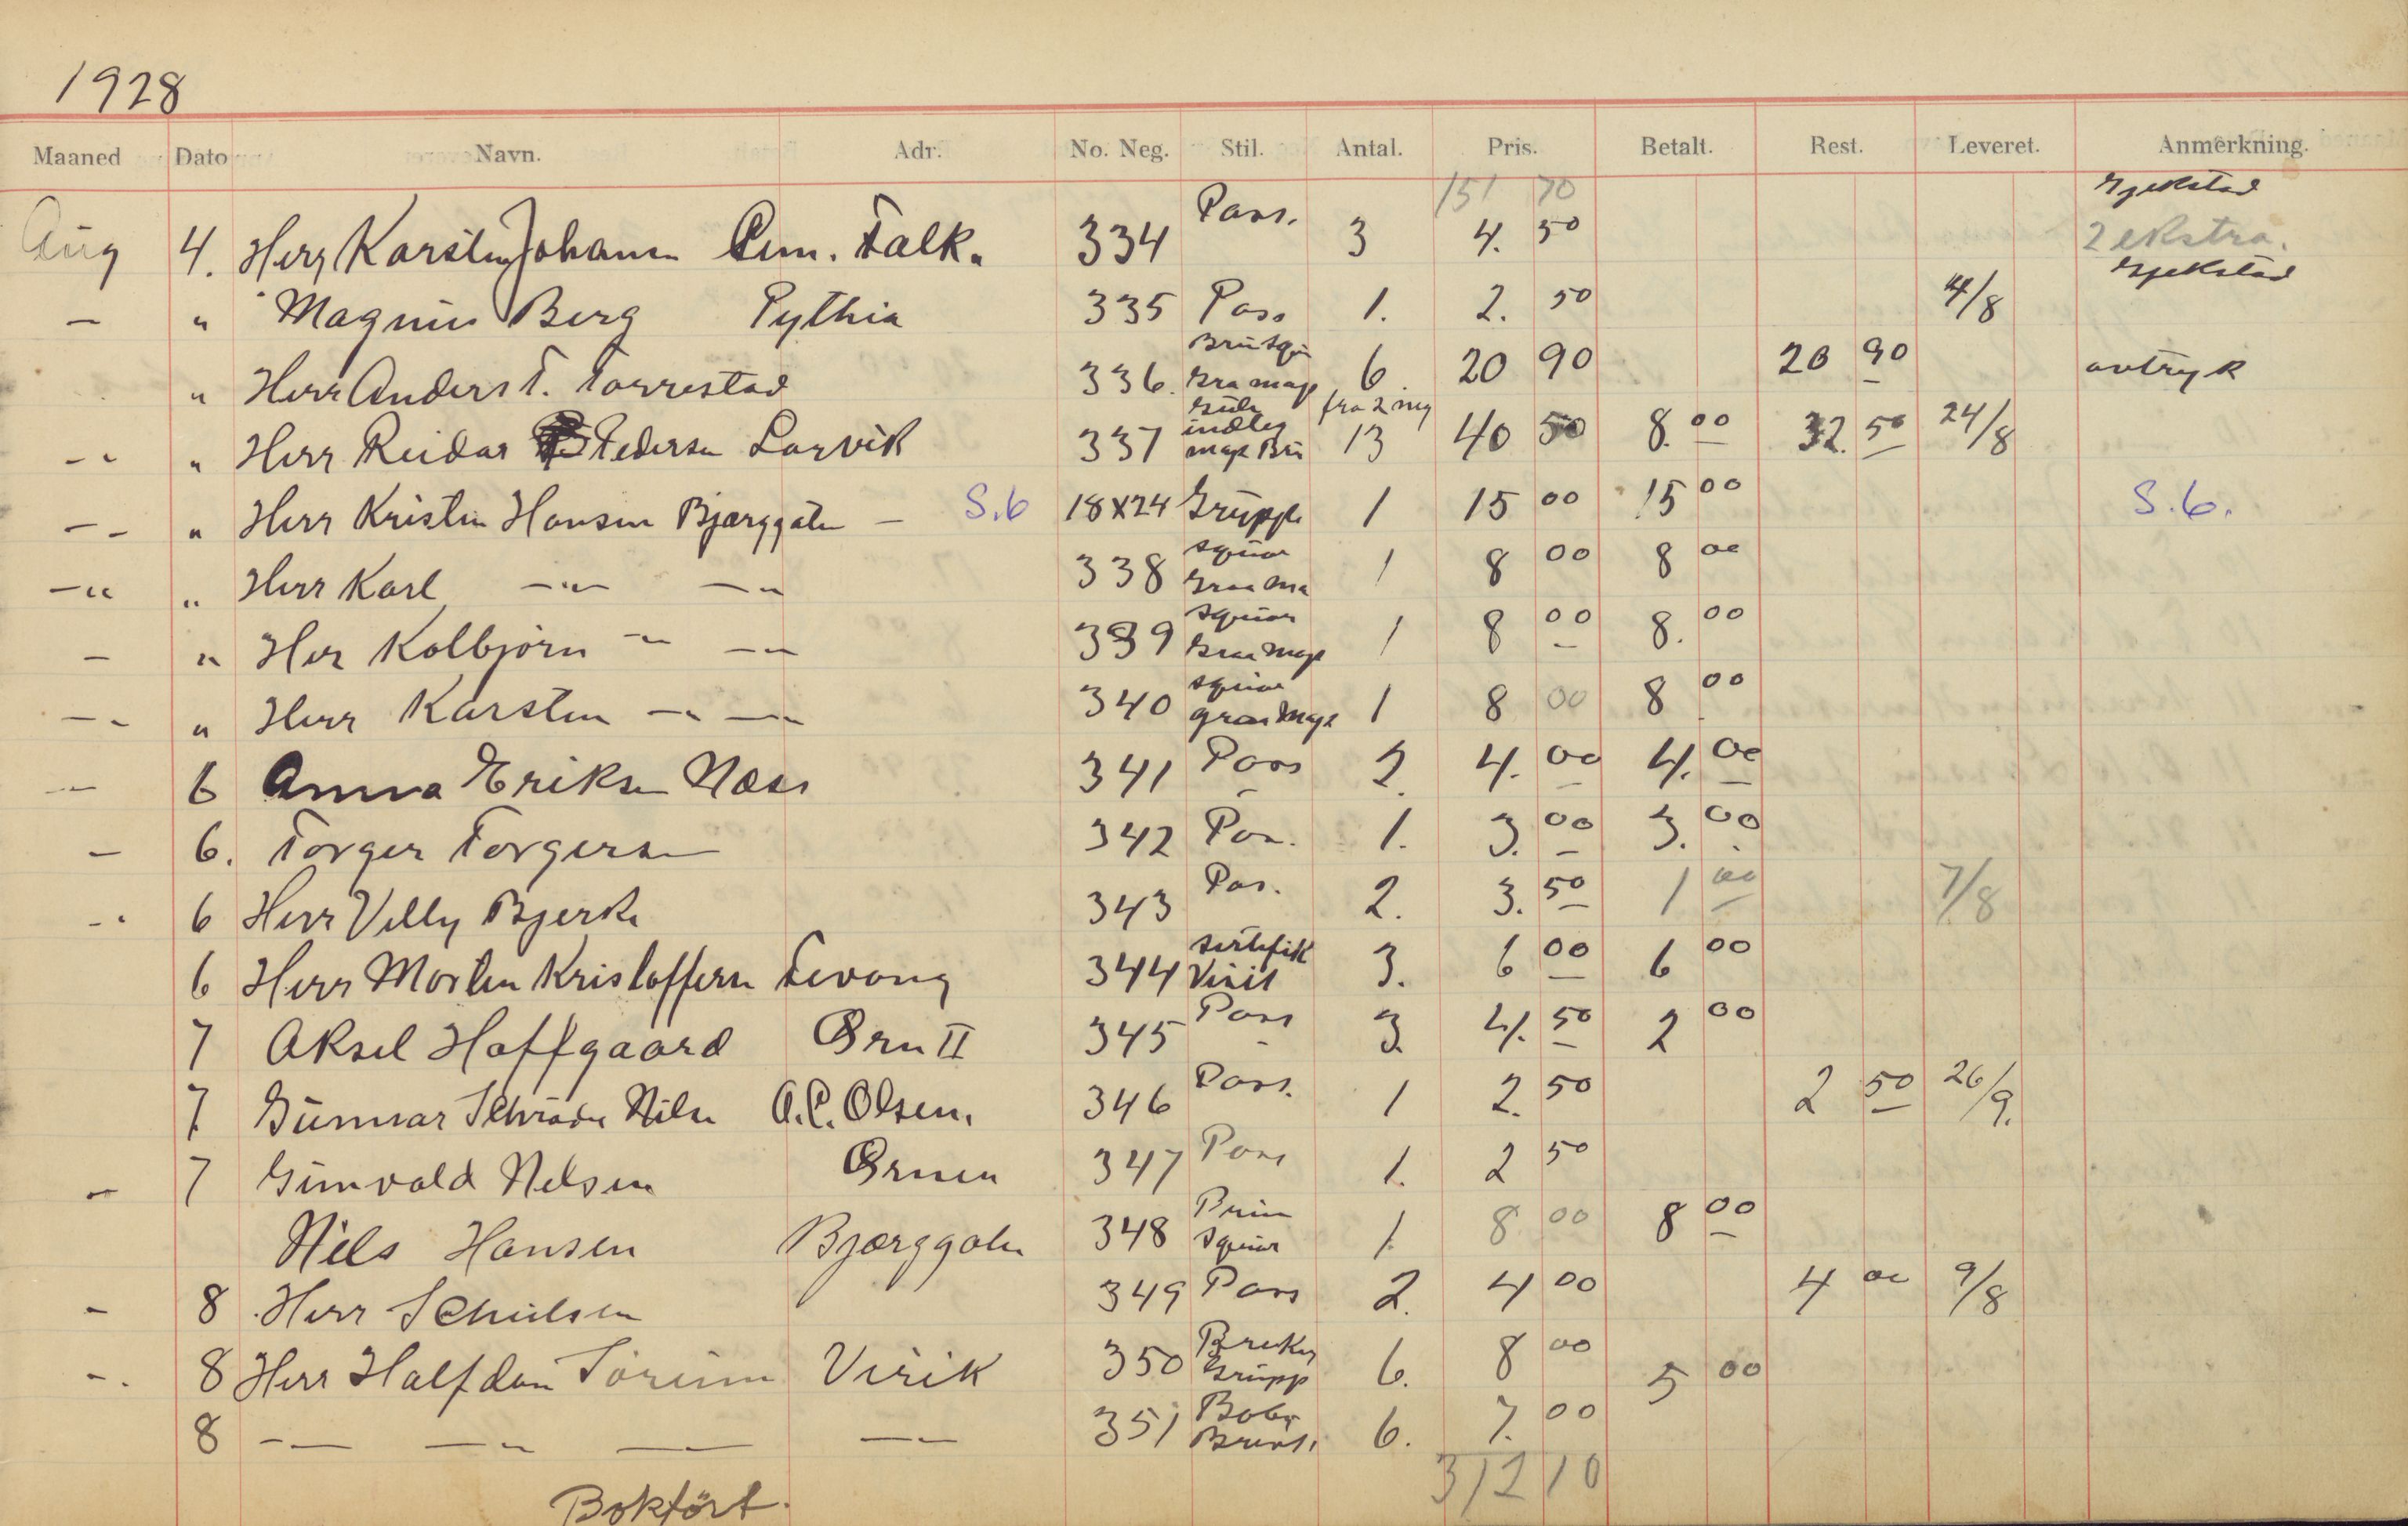 1928
Maaned Dato Navn. Adr. No. Neg. Stil. Antal. Pris. Betalt. Rest. Leveret. Anmerkning.
151 70
Aug 4. Herr Karsten Johansen Falk. 334 Pass. 3 4. 50 2 ekstra.
— " Magnus Berg Pythia 335 Pass 1. 2. 50 4/8
" Herr Anders T. Torrestad 336. 6. 20 90 20 90 avtryk
fra 2 neg
-- " Herr Reidar Pedersen Larvik 337 13 40 50 8. 00 32. 50 24/8
-- " Herr Kristen Hansen Bjerggaten — S.6 18x24 Gruppe 1 15 00 15 00 S.6.
—" " Herr Karl —"— —"— 338 squar 1 8 00 8 00
— " Herr Kolbjørn —"— —"— 339 squar Graa Map 1 8 00 8. 00
-- " Herr Karsten —"— —"— 340 squar graa Map 1 8 00 8 00
— 6 Anna Eriksen Næss 341 Pass 2. 4. 00 4. 00
— 6. Torger Torgersen 342 Pas. 1. 3. 00 3. 00
-- 6 Herr Villy Bjerke 343 Pas. 2. 3. 50 1 00 7/8
6 Herr Morten Kristoffersen Fevang 344 sertefik Visit 3. 6 00 6 00
7 Aksel Hoffgaard Ørn II 345 Pass 3. 4. 50 2 00
7. Gunnar Schrøder Nilsen O.C. Olsen. 346 Pass. 1 2. 50 2 50 26/9.
— 7 Gunvald Nelsen Ørnen 347 Pass 1. 2 50
Nils Hansen Bjerggaten 348 Squar 1. 8 00 8 00
— 8 Herr Schulsen 349 Pass 2. 4 00 4 00 9/8
-- 8 Herr Halfdan Sørum Virik 350 Grupp 6. 8 00 5 00
8 —"— —"— —— —"— 351 6. 7. 00
312 10
Bokført.